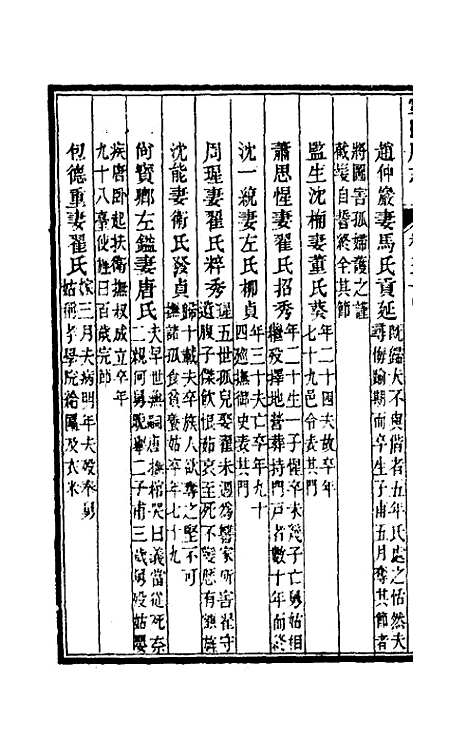 趙仲巖妻馬氏貢延
既歸夫不與偕者五年氏處之怡然夫
尋悔踰期而卒生子甫五月奪其節者
將圖害孤婦護之謹
截髮自誓終全其節
監生沈楠妻董氏葵
年二十四夫故卒年
七十九邑令表其門
蕭思惺妻翟氏招秀
年二十生一子惺卒未幾子亡舅姑相
繼歿擇地營葬持門戶者數十年而終
沈一統妻左氏柳貞
年三十夫亡卒年九十
四廵撫御史表其門
周瑆妻翟氏粹秀
瑆五世孤兒娶翟未週為讐家所害翟守
遺腹子傑飲恨茹哀至死不
沈能妻衛氏發貞
歸十載夫卒族人欲奪之堅不可
撫諸孤食貧養姑卒年七十九
尚寶卿左鎰妻唐氏
夫早世無嗣唐撫棺哭曰義當從死奈
二親何舅二子甫三歲舅歿姑嬰
疾唐卧起扶衛撫叔成立卒年
九十八臺使旌曰百歲完節
包德重妻翟氏
嫁三月夫病明年夫歿奉舅
姑稱孝學院給匾及衣米